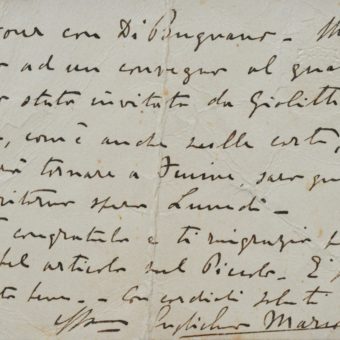 tour con Di Bugnano – M
o ad un convegno al qua
o stato invitato da Giolitti
o, com'è anche sulle carte,
rò tornare a Fiume, sarò qu
ritorno spero Lunedì –
congratulo e ti ringrazio
bel articolo sul Piccolo – E
to bene – Con cordiali saluti
Guglielmo Marc